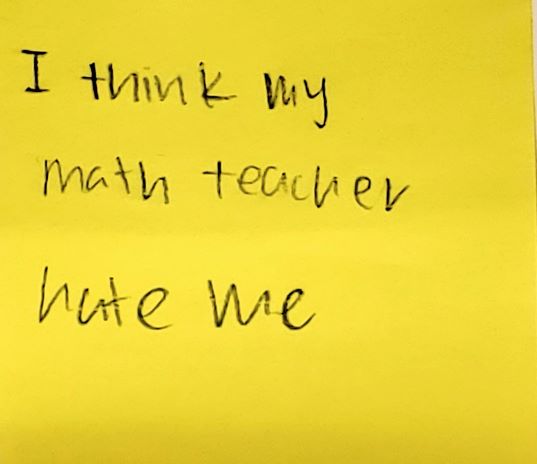 I think my
math teacher
hate me